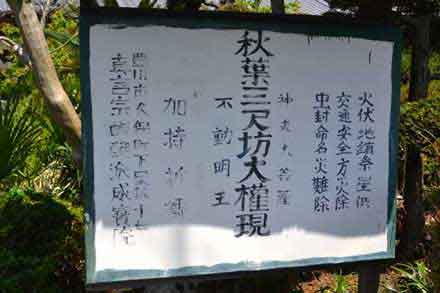 火伏地鎮祭星供
交通安全方火除
虫封命名災難除
神変大菩薩
秋葉三尺坊大權現
不動明王
加持祈禱
豊川市久保町下
真言宗醍醐派成寶院